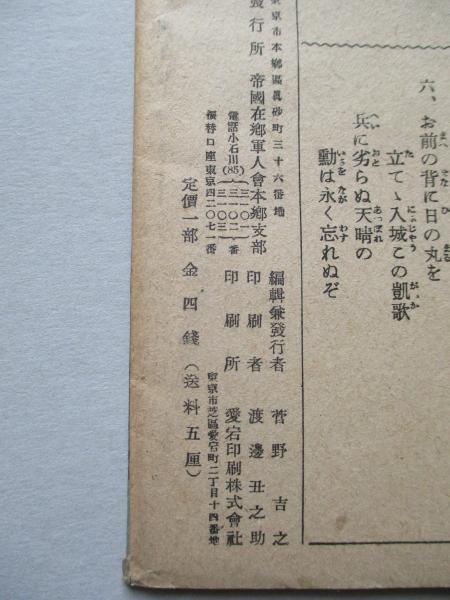 六、お前の背に日の丸を
立てゝ入城この凱歌
兵に劣らぬ天晴の
勳は永く忘れぬぞ
東京市本鄕區眞砂町三十六番地
發行所 帝國在鄕軍人會本鄕支部
電話小石川(85)(三一〇一)(三一〇二)(三一〇三)番
振替口座東京四二〇七一番
定價一部 金四錢(送料五厘)
編輯兼發行者 菅野吉之
印刷者 渡邊丑之助
印刷所 愛宕印刷株式會社
東京市芝區愛宕町二丁目十四番地